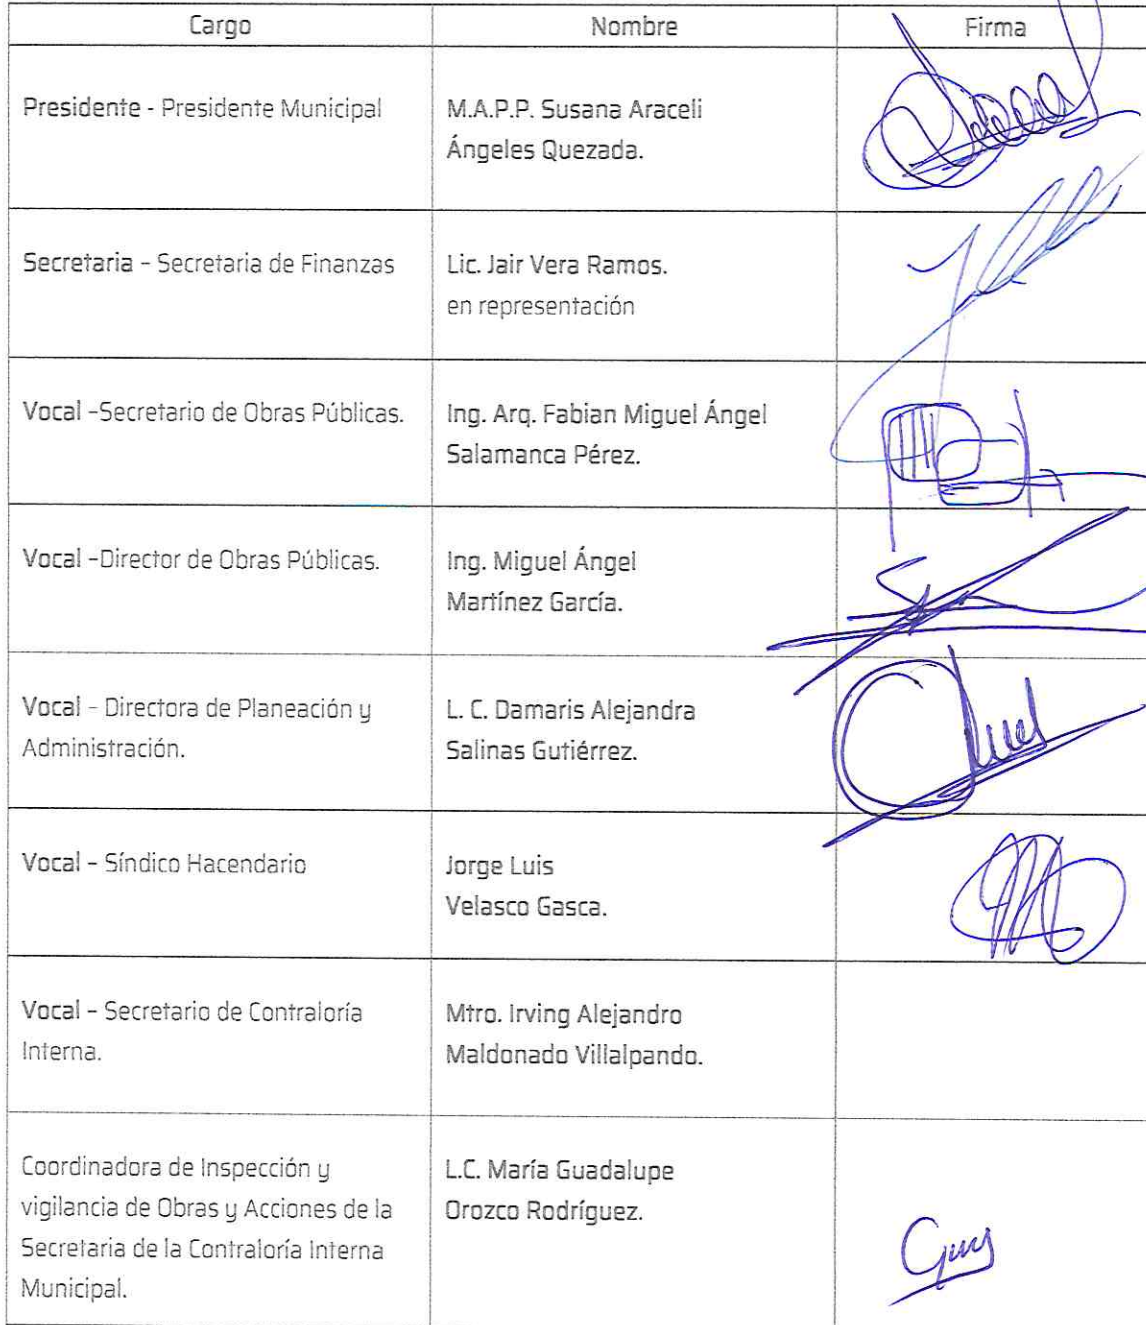 Cargo Nombre Firma
Presidente - Presidente Municipal
M.A.P.P. Susana Araceli
Ángeles Quezada.
Secretaria – Secretaria de Finanzas
Lic. Jair Vera Ramos.
en representación
Vocal –Secretario de Obras Públicas.
Ing. Arq. Fabian Miguel Ángel
Salamanca Pérez.
Vocal –Director de Obras Públicas.
Ing. Miguel Ángel
Martínez García.
Vocal – Directora de Planeación y
Administración.
L. C. Damaris Alejandra
Salinas Gutiérrez.
Vocal – Síndico Hacendario
Jorge Luis
Velasco Gasca.
Vocal – Secretario de Contraloría
Interna.
Mtro. Irving Alejandro
Maldonado Villalpando.
Coordinadora de Inspección y
vigilancia de Obras y Acciones de la
Secretaria de la Contraloría Interna
Municipal.
L.C. María Guadalupe
Orozco Rodríguez.